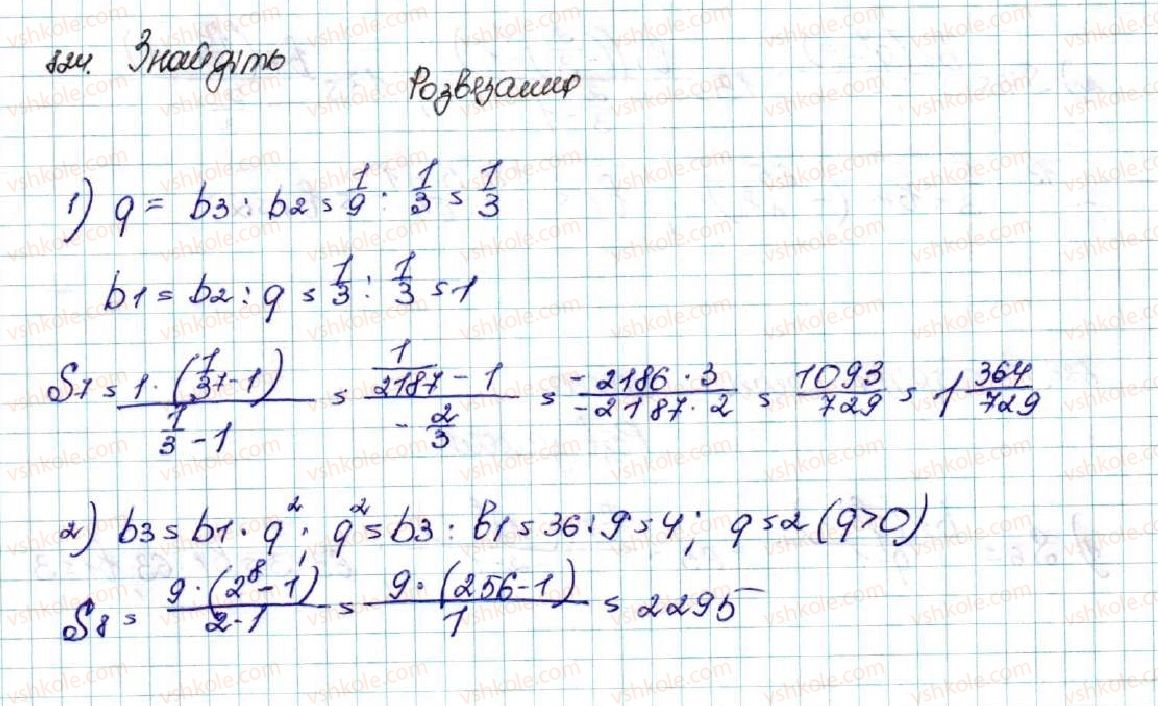 824. Знайдіть
Розвязання
1) q = b3 : b2 = 1/9 : 1/3 = 1/3
b1 = b2 : q = 1/3 : 1/3 = 1
S7 = (1 · (1/3^7 - 1)) / (1/3 - 1) = (1/2187 - 1) / (-2/3) = (-2186 · 3) / (-2187 · 2) = 1093/729 = 1 364/729
2) b3 = b1 · q²; q² = b3 : b1 = 36 : 9 = 4; q = 2 (q>0)
S8 = (9 · (2⁸ - 1)) / (2-1) = (9 · (256-1)) / 1 = 2295
vshkole.com